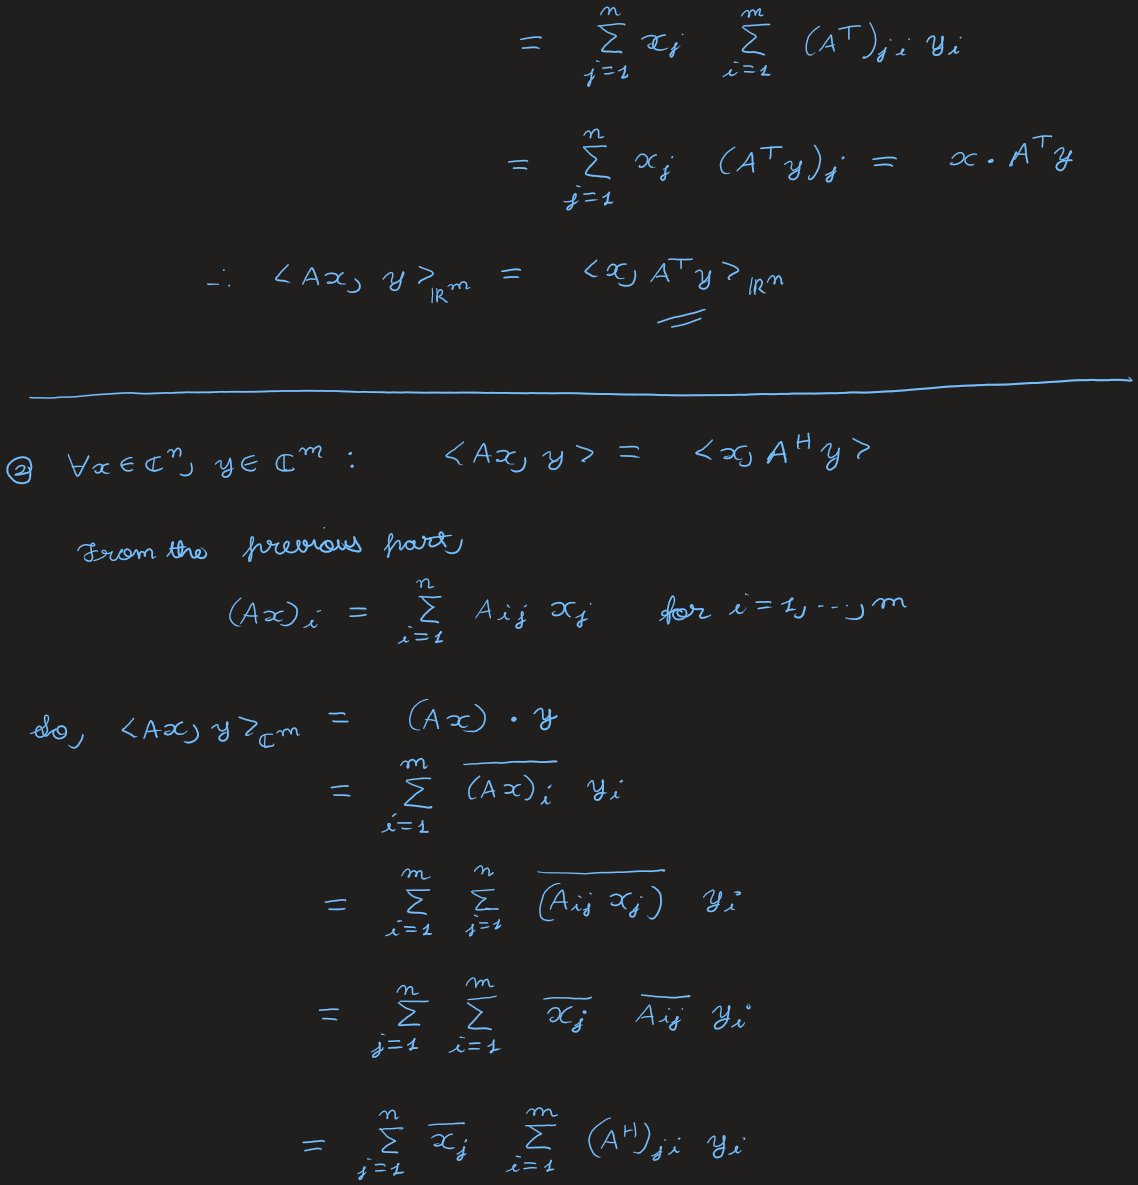 = \sum_{j=1}^{n} x_j \sum_{i=1}^{m} (A^T)_{ji} y_i
= \sum_{j=1}^{n} x_j (A^T y)_j = x \cdot A^T y
∴ <Ax, y>_{ℝ^m} = <x, A^T y>_{ℝ^n}
② ∀x ∈ ℂ^n, y ∈ ℂ^m : <Ax, y> = <x, A^H y>
From the previous part,
(Ax)_i = \sum_{i=1}^{n} A_{ij} x_j for i = 1, ..., m
So, <Ax, y>_{ℂ^m} = (Ax) \cdot y
= \sum_{i=1}^{m} \overline{(Ax)_i} y_i
= \sum_{i=1}^{m} \sum_{j=1}^{n} \overline{(A_{ij} x_j)} y_i
= \sum_{j=1}^{n} \sum_{i=1}^{m} \overline{x_j} \overline{A_{ij}} y_i
= \sum_{j=1}^{n} \overline{x_j} \sum_{i=1}^{m} (A^H)_{ji} y_i